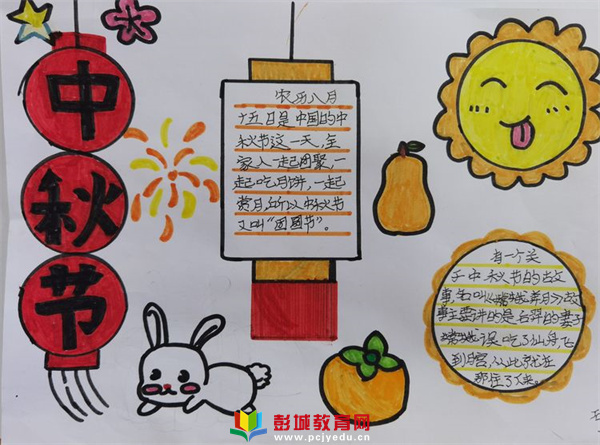 中
秋
节
农历八月
十五日是中国的中
秋节这一天,全
家人一起团聚,一
起吃月饼,一起
赏月,所以中秋节
又叫“团圆节”。
有一个关
于中秋节的故
事,名叫《嫦娥奔月》故
事主要讲的是后羿的妻子
嫦娥误吃了仙丹飞
到月宫,从此就在
那住了下来。
彭城教育网
www.pcjyedu.cn